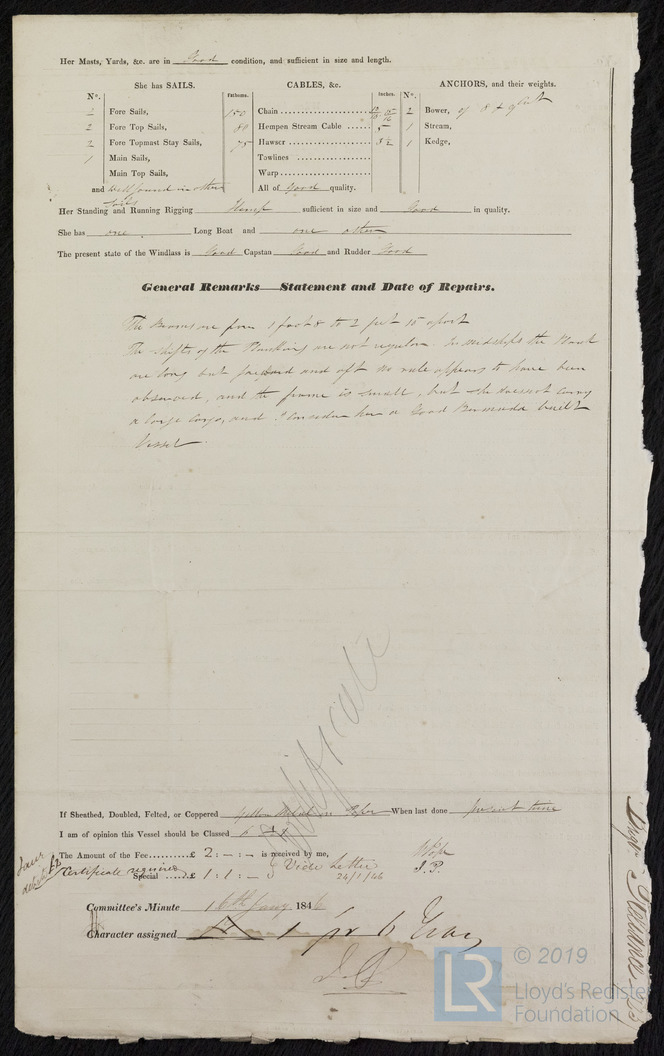 Her Masts, Yards, &c. are in Good condition, and sufficient in size and length.
She has SAILS. CABLES, &c. ANCHORS, and their weights.
N°. Fathoms. Inches. N°.
2 Fore Sails, 150 Chain 2 Bower, of 8 & 9 Cwt
2 Fore Top Sails, 80 Hempen Stream Cable 5 1 Stream,
2 Fore Topmast Stay Sails, 75 Hawser 3½ 1 Kedge,
1 Main Sails, Towlines
Main Top Sails, Warp
and Well found in other Sails All of Good quality.
Her Standing and Running Rigging Hemp sufficient in size and Good in quality.
She has one Long Boat and one other
The present state of the Windlass is Good Capstan Good and Rudder Good
General Remarks—Statement and Date of Repairs.
The Beams are from 1 foot 8 to 2 feet 10 apart
The shifts of the Planking are not regular. In midships the Plank
are long but forward and aft no rule appears to have been
observed, and the frame is small, but she does not carry
a large cargo, and I consider her a Good Bermuda built
Vessel.
Certificate
If Sheathed, Doubled, Felted, or Coppered Yellow Metal on When last done present time
I am of opinion this Vessel should be Classed 6
The Amount of the Fee £ 2 : - : - is received by me,
Certificate required
Special £ 1 : 1 : - Vide Letter
24/1/46
J.P.
Committee's Minute 16th Jany 1846
Character assigned A 1 for 6 Years
© 2019
LR Lloyd's Register
Foundation